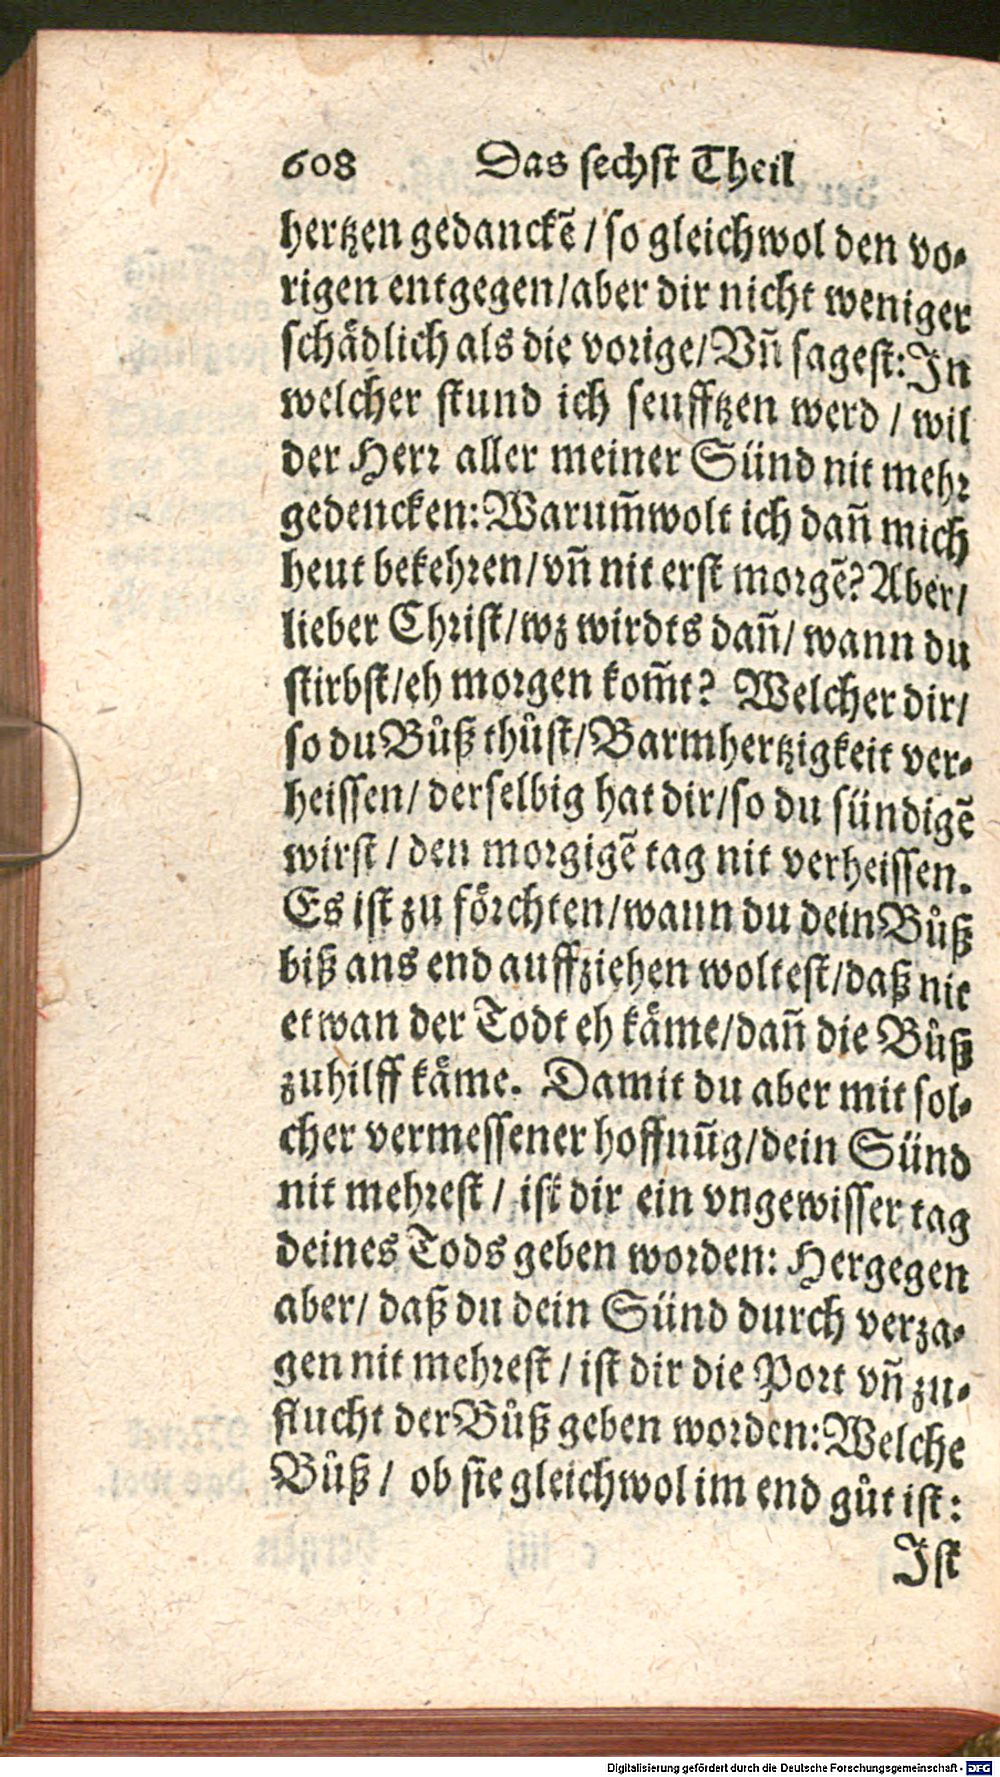 608 Das sechst Theil
hertzen gedanckẽ / so gleichwol den vo-
rigen entgegen/aber dir nicht weniger
schädlich als die vorige/Vñ sagest: In
welcher stund ich seufftzen werd / wil
der Herr aller meiner Sünd nit mehr
gedencken: Warum̃ wolt ich dañ mich
heut bekehren/vñ nit erst morgẽ? Aber/
lieber Christ/wz wirdts dañ/ wann du
stirbst/eh morgen kom̃t? Welcher dir/
so du Bůß thůst/Barmhertzigkeit ver-
heissen/ derselbig hat dir/so du sündigẽ
wirst / den morgigẽ tag nit verheissen.
Es ist zu förchten/wann du dein Bůß
biß ans end auffziehen woltest/daß nit
etwan der Todt eh käme/dañ die Bůß
zuhilff käme. Damit du aber mit sol-
cher vermessener hoffnũg/dein Sünd
nit mehrest / ist dir ein vngewisser tag
deines Tods geben worden: Hergegen
aber/ daß du dein Sünd durch verza-
gen nit mehrest / ist dir die Port vñ zu-
flucht der Bůß geben worden: Welche
Bůß / ob sie gleichwol im end gůt ist:
Ist
Digitalisierung gefördert durch die Deutsche Forschungsgemeinschaft - DFG